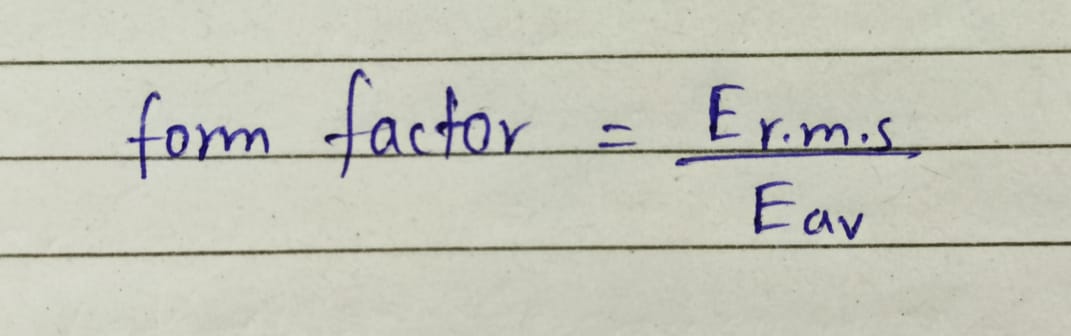 form factor = E r.m.s
E av